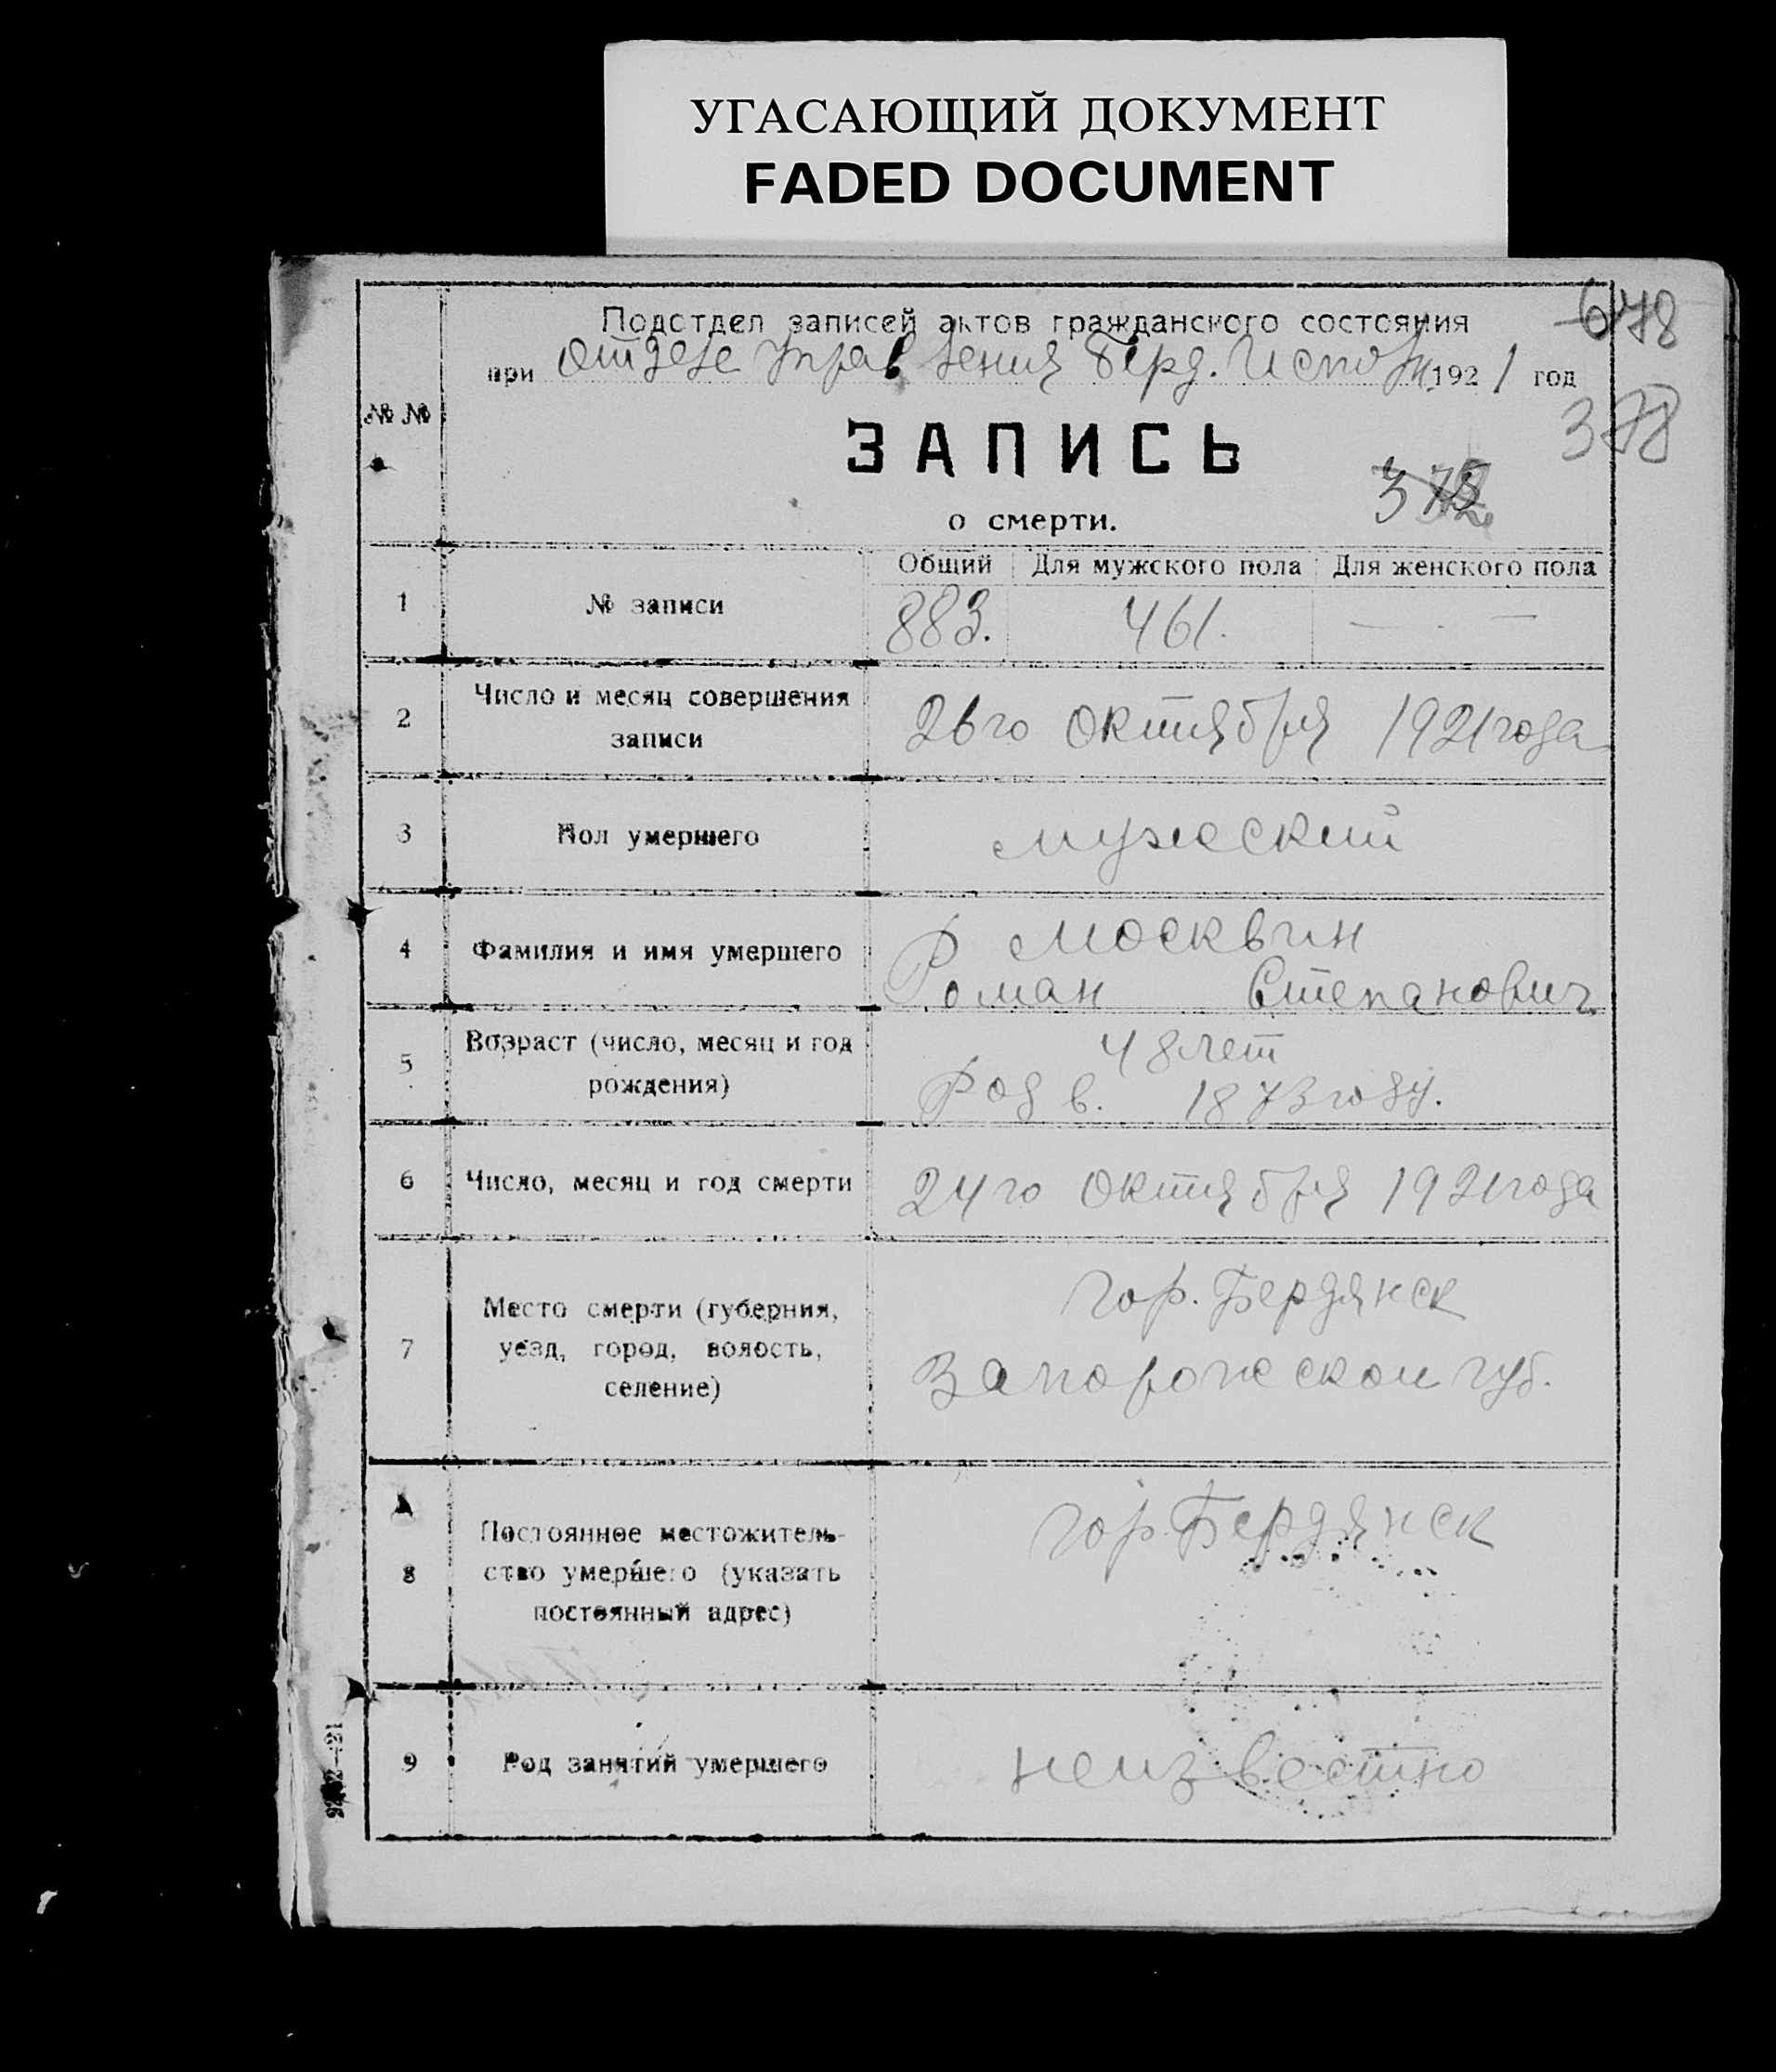 УГАСАЮЩИЙ ДОКУМЕНТ
FADED DOCUMENT
Подотдел записей актов гражданского состояния
при отделе управления Берд. Исполк. 1921 год
№ №
ЗАПИСЬ
о смерти.
Общий Для мужского пола Для женского пола
1 № записи 883. 461. —
2 Число и месяц совершения
записи
26го октября 1921 года
3 Пол умершего мужеский
4 Фамилия и имя умершего
Москвин
Роман Степанович
5 Возраст (число, месяц и год
рождения)
48 лет
Род в. 1873 году.
6 Число, месяц и год смерти 24го октября 1921 года
7 Место смерти (губерния,
уезд, город, волость,
селение)
гор. Бердянск
Запорожской губ.
8 Постоянное местожитель-
ство умершего (указать
постоянный адрес)
гор. Бердянск
9 Род занятий умершего неизвестно